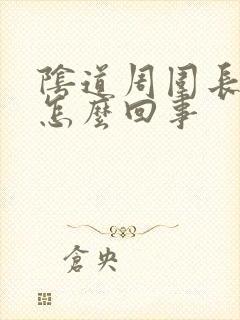 陰道周圍長
怎麼回事
倉央